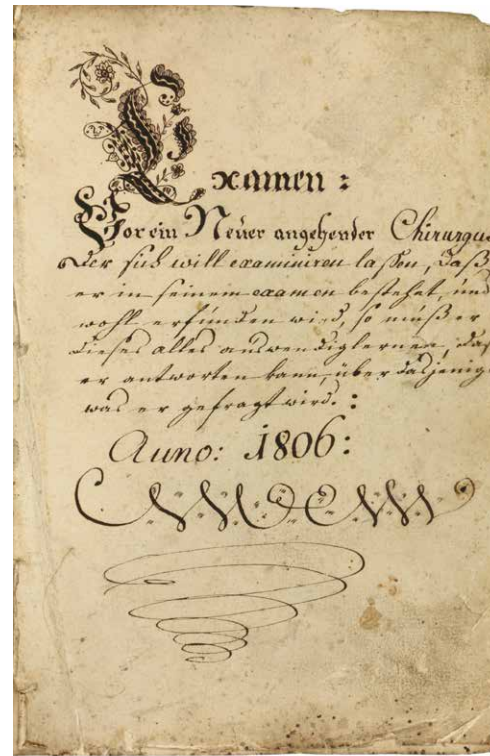 Examen:
Vor ein Neüer angehender Chirurgus
Der sich will examiniren laßen, daß
er in seinem examen bestehet, und
wohl erfunden wird, so müß er
dieses alles auswendiglernen, daß
er antworten kann, über dasjenig
was er gefragt wird.:
Anno: 1806: